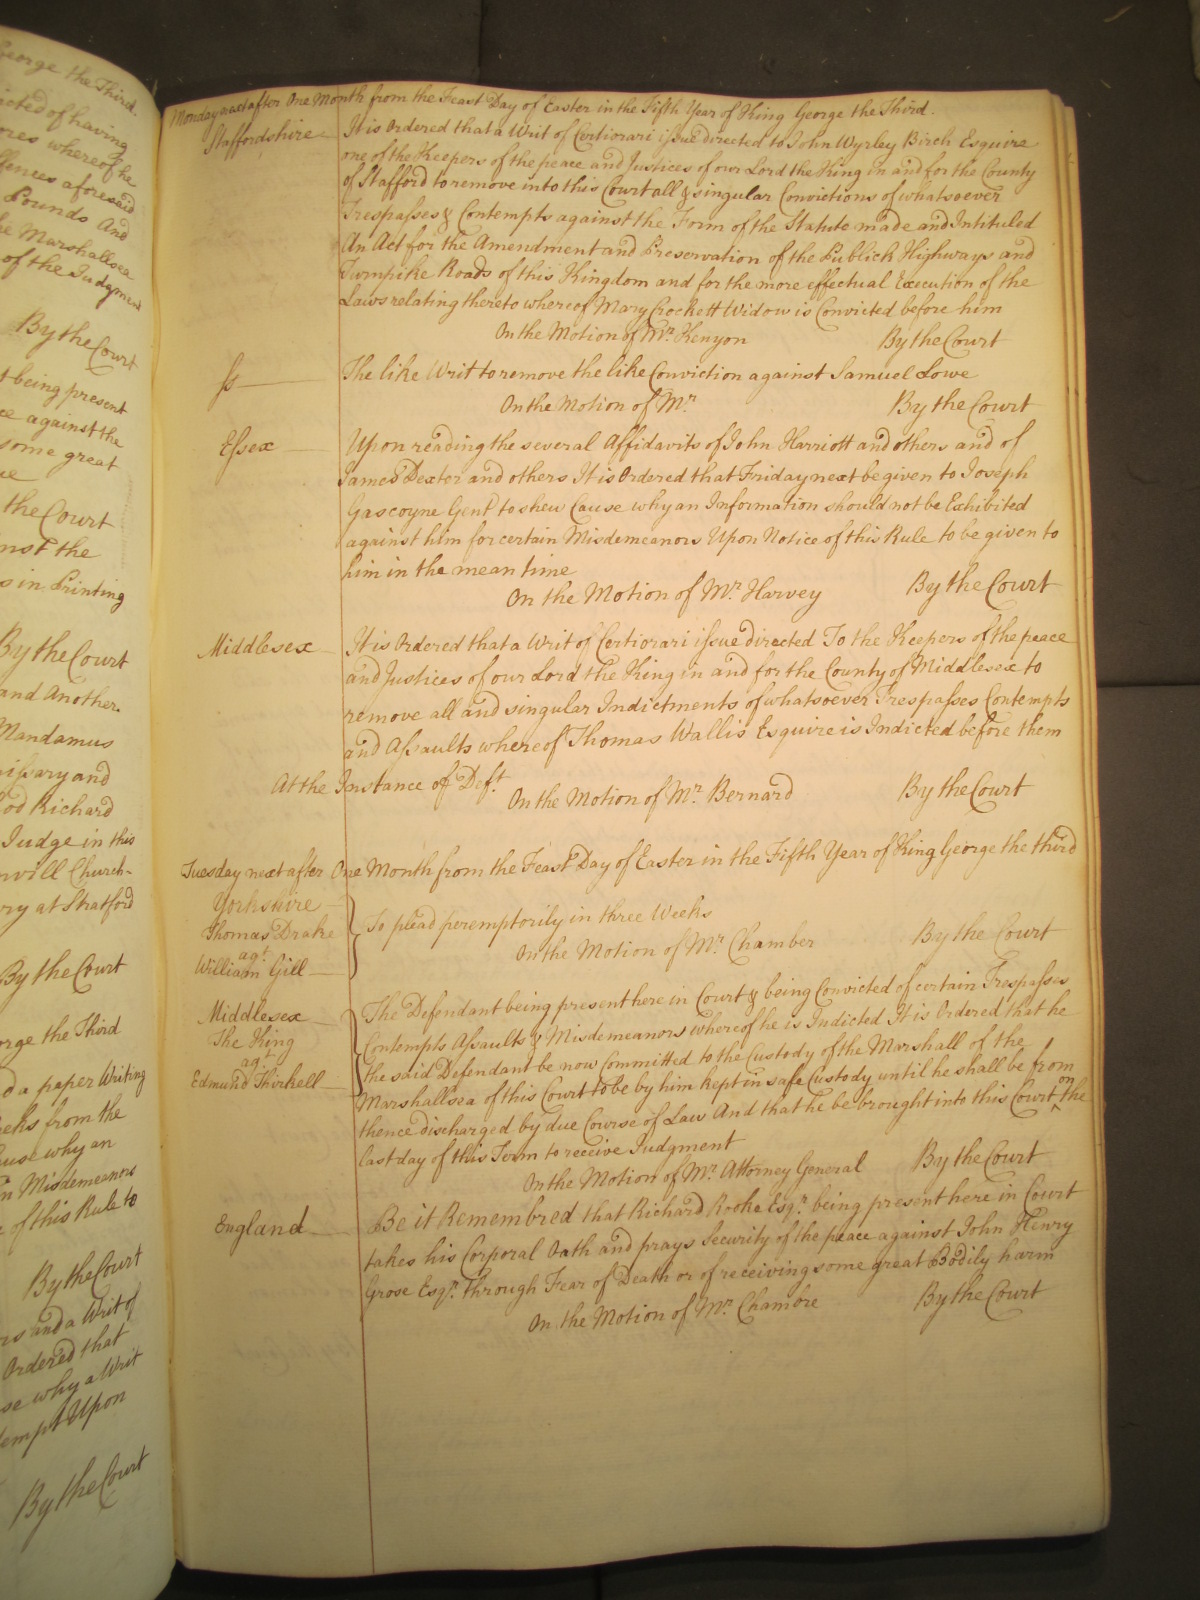 George the Third.
icted of having
ores whereof he
ffences aforesaid
Pounds And
he Marshallsea
of the Judgment
By the Court
t being present
ce against the
some great
the Court
nst the
s in Printing
By the Court
and Another.
Mandamus
issary and
od Richard
Judge in this
will Church-
ry at Stratford
By the Court
orge the Third
d a paper Writing
eeks from the
ause why an
n Misdemeanors
e of this Rule to
By the Court
rs and a Writ of
Ordered that
se why a Writ
tempt Upon
By the Court
Monday next after One Month from the Feast Day of Easter in the Fifth Year of King George the Third.
Staffordshire It is Ordered that a Writ of Certiorari issue directed to John Wyrley Birch Esquire
one of the Keepers of the peace and Justices of our Lord the King in and for the County
of Stafford to remove into this Court all & singular Convictions of whatsoever
Trespasses & Contempts against the Form of the Statute made and Intituled
An Act for the Amendment and Preservation of the Publick Highways and
Turnpike Roads of this Kingdom and for the more effectual Execution of the
Laws relating thereto whereof Mary Crockett Widow is Convicted before him
On the Motion of Mr. Kenyon By the Court
ss The like Writ to remove the like Conviction against Samuel Lowe
On the Motion of Mr. By the Court
Essex Upon reading the several Affidavits of John Harriott and others and of
James Dexter and others It is Ordered that Friday next be given to Joseph
Gascoyne Gent to shew Cause why an Information should not be Exhibited
against him for certain Misdemeanors Upon Notice of this Rule to be given to
him in the mean time
On the Motion of Mr. Harvey By the Court
Middlesex It is Ordered that a Writ of Certiorari issue directed To the Keepers of the peace
and Justices of our Lord the King in and for the County of Middlesex to
remove all and singular Indictments of whatsoever Trespasses Contempts
and Assaults whereof Thomas Wallis Esquire is Indicted before them
At the Instance of Deft. On the Motion of Mr. Bernard By the Court
Tuesday next after One Month from the Feast Day of Easter in the Fifth Year of King George the third
Yorkshire
Thomas Drake To plead peremptorily in three Weeks
agt. On the Motion of Mr. Chamber By the Court
William Gill
Middlesex The Defendant being present here in Court & being Convicted of certain Trespasses
The King Contempts Assaults & Misdemeanors whereof he is Indicted It is Ordered that he
agt. the said Defendant be now Committed to the Custody of the Marshall of the
Edmund Thirkell Marshallsea of this Court to be by him kept in safe Custody until he shall be from
thence discharged by due Course of Law And that he be brought into this Court on the
last day of this Term to receive Judgment
On the Motion of Mr. Attorney General By the Court
England Be it Remembred that Richard Rooke Esqr. being present here in Court
takes his Corporal Oath and prays Security of the peace against John Henry
Grose Esqr. through Fear of Death or of receiving some great Bodily harm
On the Motion of Mr. Chambre By the Court